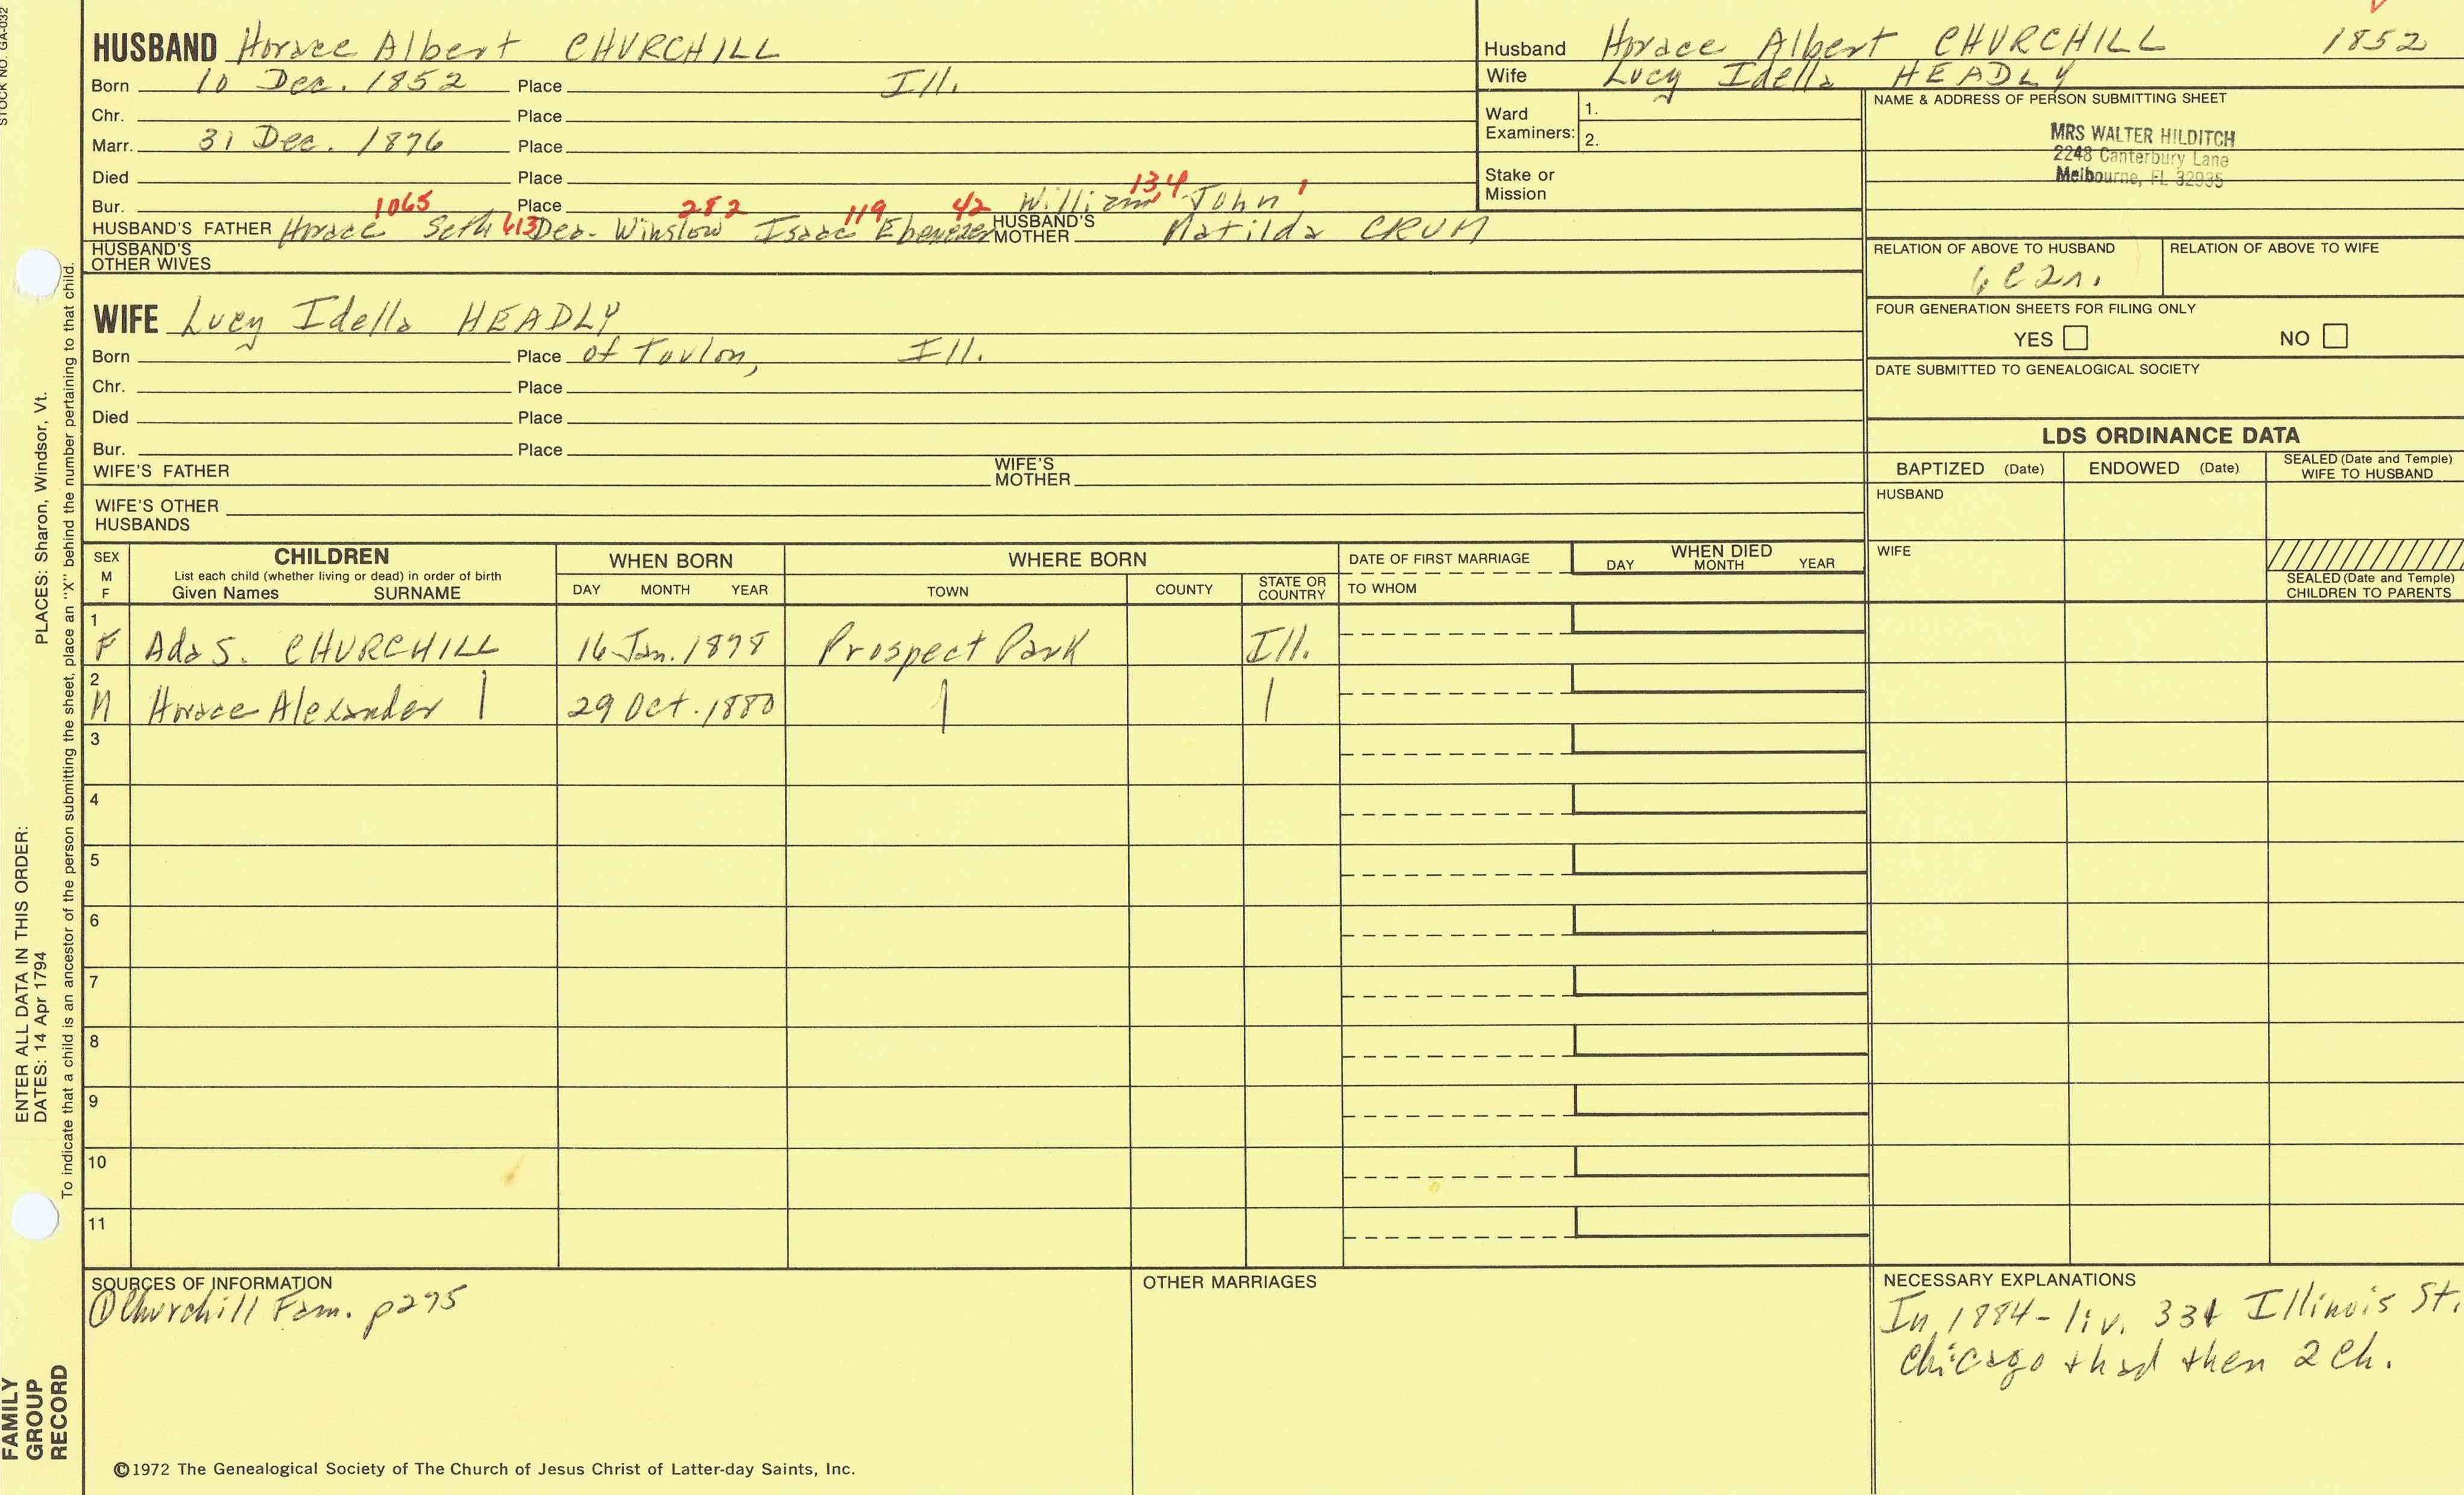 STOCK NO. GA-032
HUSBAND Horace Albert CHURCHILL
Born 10 Dec. 1852 Place Ill.
Chr. Place
Marr. 31 Dec. 1876 Place
Died Place
Bur. Place
1065 613 282 119 42 William 13,4 John 1
HUSBAND'S FATHER Horace Seth Dea. Winslow Isaac Ebenezer HUSBAND'S MOTHER Matilda CRUM
HUSBAND'S OTHER WIVES
Husband Horace Albert CHURCHILL 1852
Wife Lucy Idella HEADLY
Ward Examiners: 1.
2.
Stake or Mission
NAME & ADDRESS OF PERSON SUBMITTING SHEET
MRS WALTER HILDITCH
2248 Canterbury Lane
Melbourne, FL 32935
RELATION OF ABOVE TO HUSBAND RELATION OF ABOVE TO WIFE
6C2r.
FOUR GENERATION SHEETS FOR FILING ONLY
YES NO
DATE SUBMITTED TO GENEALOGICAL SOCIETY
WIFE Lucy Idella HEADLY
Born Place of Toulon, Ill.
Chr. Place
Died Place
Bur. Place
WIFE'S FATHER WIFE'S MOTHER
WIFE'S OTHER HUSBANDS
LDS ORDINANCE DATA
BAPTIZED (Date) ENDOWED (Date) SEALED (Date and Temple) WIFE TO HUSBAND
HUSBAND
WIFE
SEALED (Date and Temple) CHILDREN TO PARENTS
SEX M F
CHILDREN
List each child (whether living or dead) in order of birth
Given Names SURNAME
WHEN BORN
DAY MONTH YEAR
WHERE BORN
TOWN COUNTY STATE OR COUNTRY
DATE OF FIRST MARRIAGE
TO WHOM
WHEN DIED
DAY MONTH YEAR
1 F Ada S. CHURCHILL 16 Jan. 1878 Prospect Park Ill.
2 M Horace Alexander | 29 Oct. 1880 | |
3
4
5
6
7
8
9
10
11
SOURCES OF INFORMATION
① Churchill Fam. p275
OTHER MARRIAGES
NECESSARY EXPLANATIONS
In 1884 - liv. 334 Illinois St.
Chicago + had then 2 Ch.
©1972 The Genealogical Society of The Church of Jesus Christ of Latter-day Saints, Inc.
FAMILY GROUP RECORD
ENTER ALL DATA IN THIS ORDER:
DATES: 14 Apr 1794
PLACES: Sharon, Windsor, Vt.
To indicate that a child is an ancestor of the person submitting the sheet, place an "X" behind the number pertaining to that child.